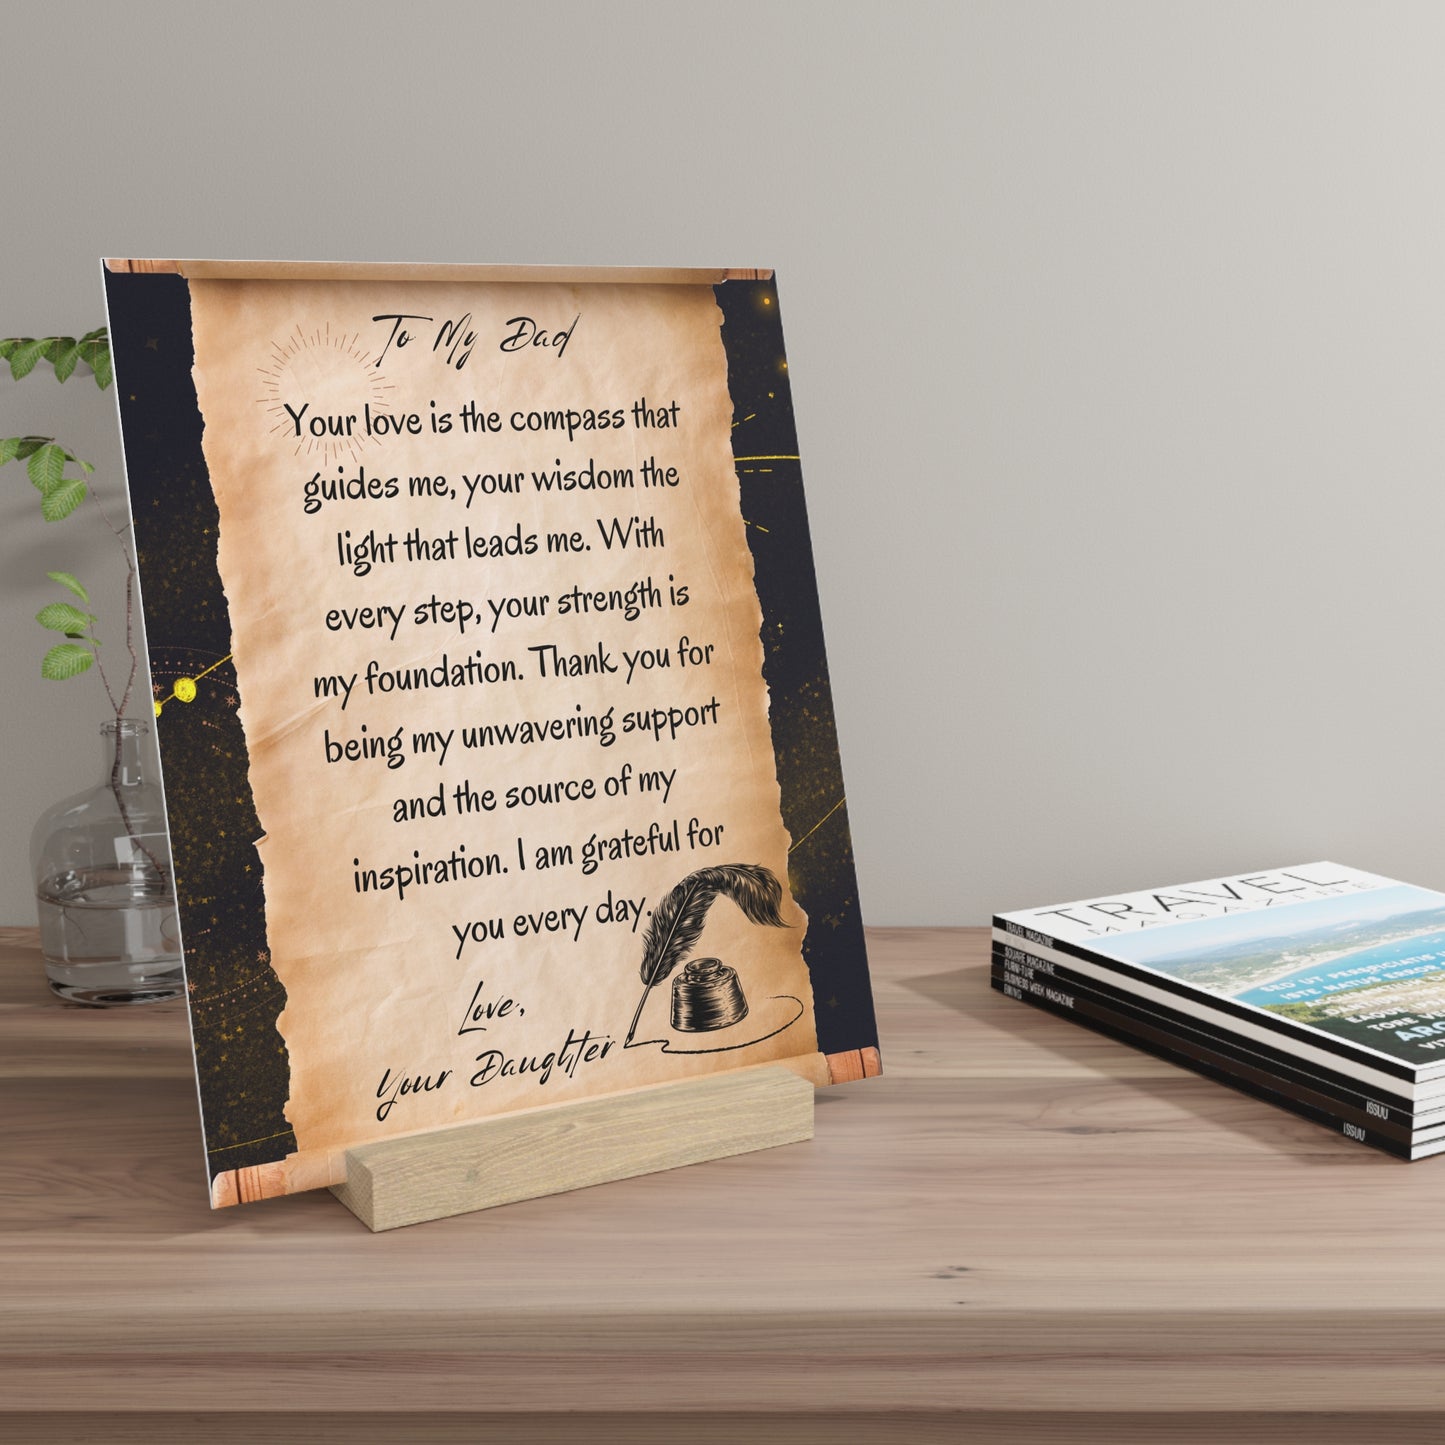 To My Dad
Your love is the compass that
guides me, your wisdom the
light that leads me. With
every step, your strength is
my foundation. Thank you for
being my unwavering support
and the source of my
inspiration. I am grateful for
you every day.
Love,
Your Daughter
TRAVEL
MAGAZINE
TRAVEL MAGAZINE
SQUARE MAGAZINE
FURNI-TURE
BUSINESS WEEK MAGAZINE
ISSUU
ISSUU